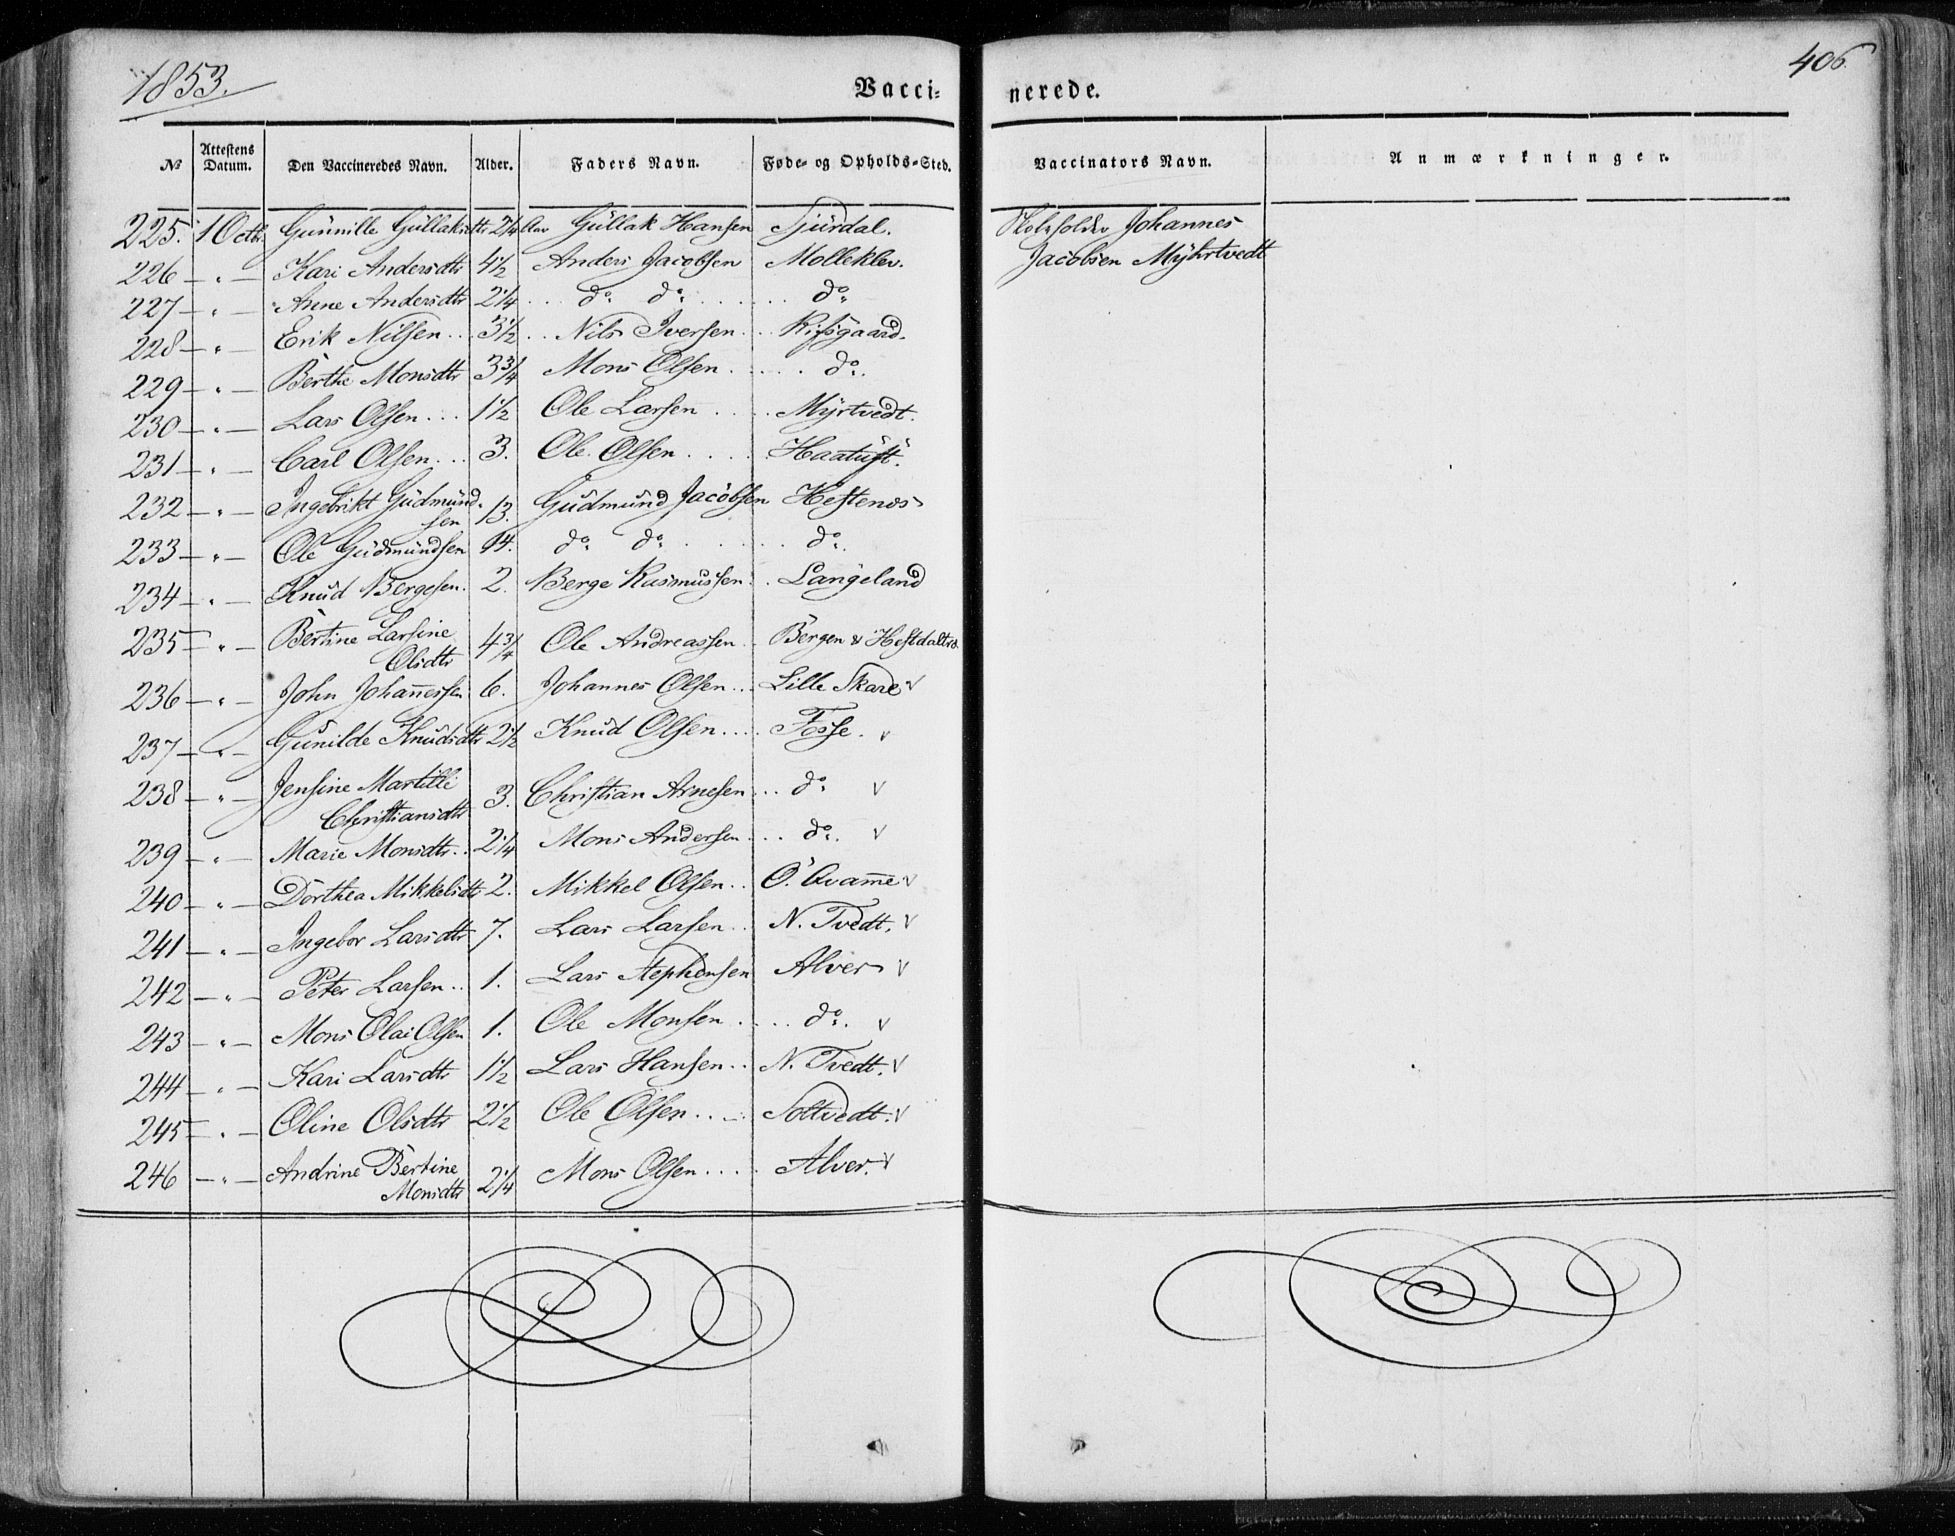 1853.
406.
Vacci=
nerede.
№ Attestens Datum. Den Vaccineredes Navn. Alder. Faders Navn. Føde- og Opholds-Sted. Vaccinators Navn. Anmærkninger.
225. 1 Octbr. Gunnille Gullaksdtr 2 1/4 Aar Gullak Hansen Sjurdal. Skoleholder Johannes
226 — " — Kari Andersdtr 4 1/2 Anders Jacobsen Molleklev. Jacobsen Myhrtvedt
227 — " — Anne Andersdtr 2 1/4 ... do. do. ... do.
228 — " — Erik Nilsen .. 3 1/2 .. Nils Iversen .. Risgaard.
229 — " — Berthe Monsdtr 3 3/4 Mons Olsen .... do.
230 — " — Lars Olsen ... 1 1/2 Ole Larsen .... Myrtvedt.
231 — " — Carl Olsen ... 3. Ole Olsen .... Haatuft.
232 — " — Ingebrikt Gudmund-
sen 13. Gudmund Jacobsen Hestenes
233 — " — Ole Gudmundsen 14. do. do. ... do.
234 — " — Knud Bergesen. 2. Berge Rasmussen .. Langeland
235 — " — Bertine Larsine
Olsdtr 4 3/4 Ole Andreassen .. Bergen &
236 — " — John Johannessen 6. Johannes Olsen ... Lille Skare v
237 — " — Gunilde Knudsdtr 2 1/2 Knud Olsen .... Fosse. v
238 — " — Jensine Martilli
Christiansdtr 3. Christian Arnesen ... do v
239 — " — Marie Monsdtr .. 2 1/4 Mons Andersen ... do. v
240 — " — Dorthea Mikkelsdtr 2. Mikkel Olsen .. O. Qvamme v
241 — " — Ingebor Larsdtr 7. Lars Larsen .. N. Tvedt. v
242 — " — Peter Larsen .. 1. Lars Stephensen Alver v
243 — " — Mons Olai Olsen 1. Ole Monsen .... do. v
244 — " — Kari Larsdtr 1 1/2 Lars Hansen .. N. Tvedt. v
245 — " — Oline Olsdtr 2 1/2 Ole Olsen .... Soltvedt. v
246 — " — Andrine Bertine
Monsdtr 2 1/4 Mons Olsen .... Alver. v